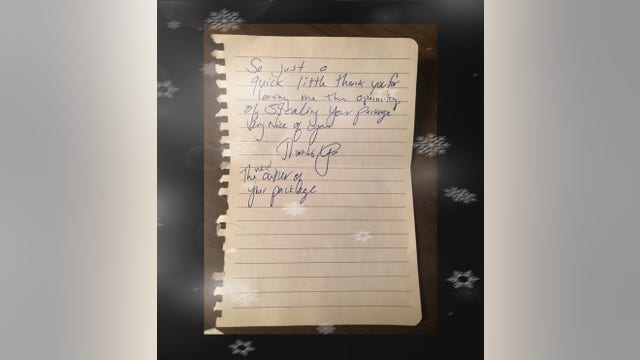 So Just a
quick little thank you for
leaving me the oppinitey
of Stealing Your package
Very Nice of you
Thanks
new
The owner of
your package